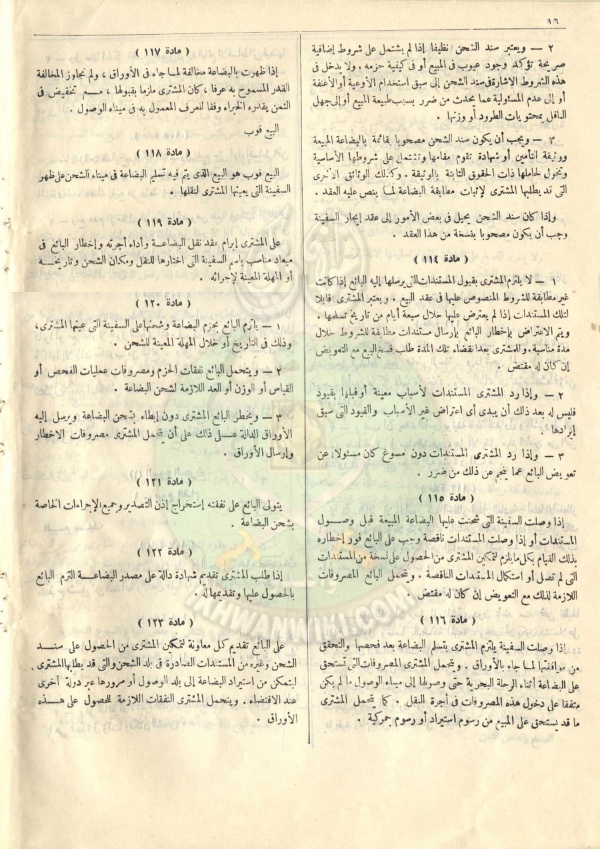 ١٦
٢ — ويعتبر سند الشحن نظيفا إذا لم يشتمل على شروط إضافية
صريحة تؤكد وجود عيوب فى المبيع أو فى كيفية حزمه . ولا يدخل فى
هذه الشروط الاشارة فى سند الشحن إلى سبق استخدام الأوعية أو الأغلفة
أو إلى عدم المسئولية عما يحدث من ضرر بسبب طبيعة المبيع أو إلى جهل
الناقل بمحتويات الطرود أو وزنها .
٣ — ويجب أن يكون سند الشحن مصحوبا بقائمة بالبضاعة المبيعة
ووثيقة التأمين أو شهادة تقوم مقامها وتشتمل على شروطها الأساسية
وتخول لحاملها ذات الحقوق الثابتة بالوثيقة ، وكذلك الوثائق الأخرى
التى قد يطلبها المشترى لإثبات مطابقة البضاعة لما ينص عليه العقد .
وإذا كان سند الشحن يحيل فى بعض الأمور إلى عقد إيجار السفينة
وجب أن يكون مصحوبا بنسخة من هذا العقد .
( مادة ١١٤ )
١ — لا يلتزم المشترى بقبول المستندات التى يرسلها إليه البائع إذا كانت
غير مطابقة للشروط المنصوص عليها فى عقد البيع . ويعتبر المشترى قابلا
لتلك المستندات إذا لم يعترض عليها خلال سبعة أيام من تاريخ تسلمها .
ويتم الاعتراض بإخطار البائع بإرسال مستندات مطابقة للشروط خلال
مدة مناسبة . وللمشترى بعد انقضاء تلك المدة طلب فسخ البيع مع التعويض
إن كان له مقتض .
٢ — وإذا رد المشترى المستندات لأسباب معينة أو قبلها بقيود
فليس له بعد ذلك أن يبدى أى اعتراض غير الأسباب والقيود التى سبق
إيرادها
٣ — وإذا رد المشترى المستندات دون مسوغ كان مسئولا عن
تعويض البائع عما ينجم عن ذلك من ضرر .
( مادة ١١٥ )
إذا وصلت السفينة التى شحنت عليها البضاعة المبيعة قبل وصول
المستندات أو إذا وصلت المستندات ناقصة وجب على البائع فور إخطاره
بذلك القيام بكل ما يلزم لتمكين المشترى من الحصول على نسخة من المستندات
التى لم تصل أو استكمال المستندات الناقصة . ويتحمل البائع المصروفات
اللازمة لذلك مع التعويض إن كان له مقتض .
( مادة ١١٦ )
إذا وصلت السفينة يلتزم المشترى بتسلم البضاعة بعد فحصها والتحقق
من موافقتها لما جاء بالأوراق . ويتحمل المشترى المصروفات التى تستحق
على البضاعة أثناء الرحلة البحرية حتى وصولها إلى ميناء الوصول ما لم يكن
متفقا على دخول هذه المصروفات فى أجرة النقل . كما يتحمل المشترى
ما قد يستحق على المبيع من رسوم استيراد أو رسوم جمركية .
( مادة ١١٧ )
إذا ظهرت بالبضاعة مخالفة لما جاء فى الأوراق ، ولم تجاوز المخالفة
القدر المسموح به عرفا ، كان المشترى ملزما بقبولها ، مع تخفيض فى
الثمن يقدره الخبراء وفقا للعرف المعمول به فى ميناء الوصول .
البيع فوب
( مادة ١١٨ )
البيع فوب هو البيع الذى يتم فيه تسلم البضاعة فى ميناء الشحن على ظهر
السفينة التى يعينها المشترى لنقلها .
( مادة ١١٩ )
على المشترى إبرام عقد نقل البضاعة وأداء أجرته وإخطار البائع فى
ميعاد مناسب باسم السفينة التى اختارها للنقل ومكان الشحن وتاريخه
أو المهلة المعينة لإجرائه .
( مادة ١٢٠ )
١ — يلتزم البائع بحزم البضاعة وشحنها على السفينة التى عينها المشترى ،
وذلك فى التاريخ أو خلال المهلة المعينة للشحن .
٢ — ويتحمل البائع نفقات الحزم ومصروفات عمليات الفحص أو
القياس أو الوزن أو العد اللازمة لشحن البضاعة .
٣ — ويخطر البائع المشترى دون إبطاء بشحن البضاعة ويرسل إليه
الأوراق الدالة على ذلك على أن يتحمل المشترى مصروفات الاخطار
وإرسال الأوراق .
( مادة ١٢١ )
يتولى البائع على نفقته إستخراج إذن التصدير وجميع الإجراءات الخاصة
بشحن البضاعة .
( مادة ١٢٢ )
إذا طلب المشترى تقديم شهادة دالة على مصدر البضاعة التزم البائع
بالحصول عليها وتقديمها له .
( مادة ١٢٣ )
على البائع تقديم كل معاونة لتمكين المشترى من الحصول على سند
الشحن وغيره من المستندات الصادرة فى بلد الشحن والتى قد يطلبها المشترى
ليتمكن من استيراد البضاعة إلى بلد الوصول أو مرورها عبر دولة أخرى
عند الاقتضاء . ويتحمل المشترى النفقات اللازمة للحصول على هذه
الأوراق .
IKHWANWIKI.COM